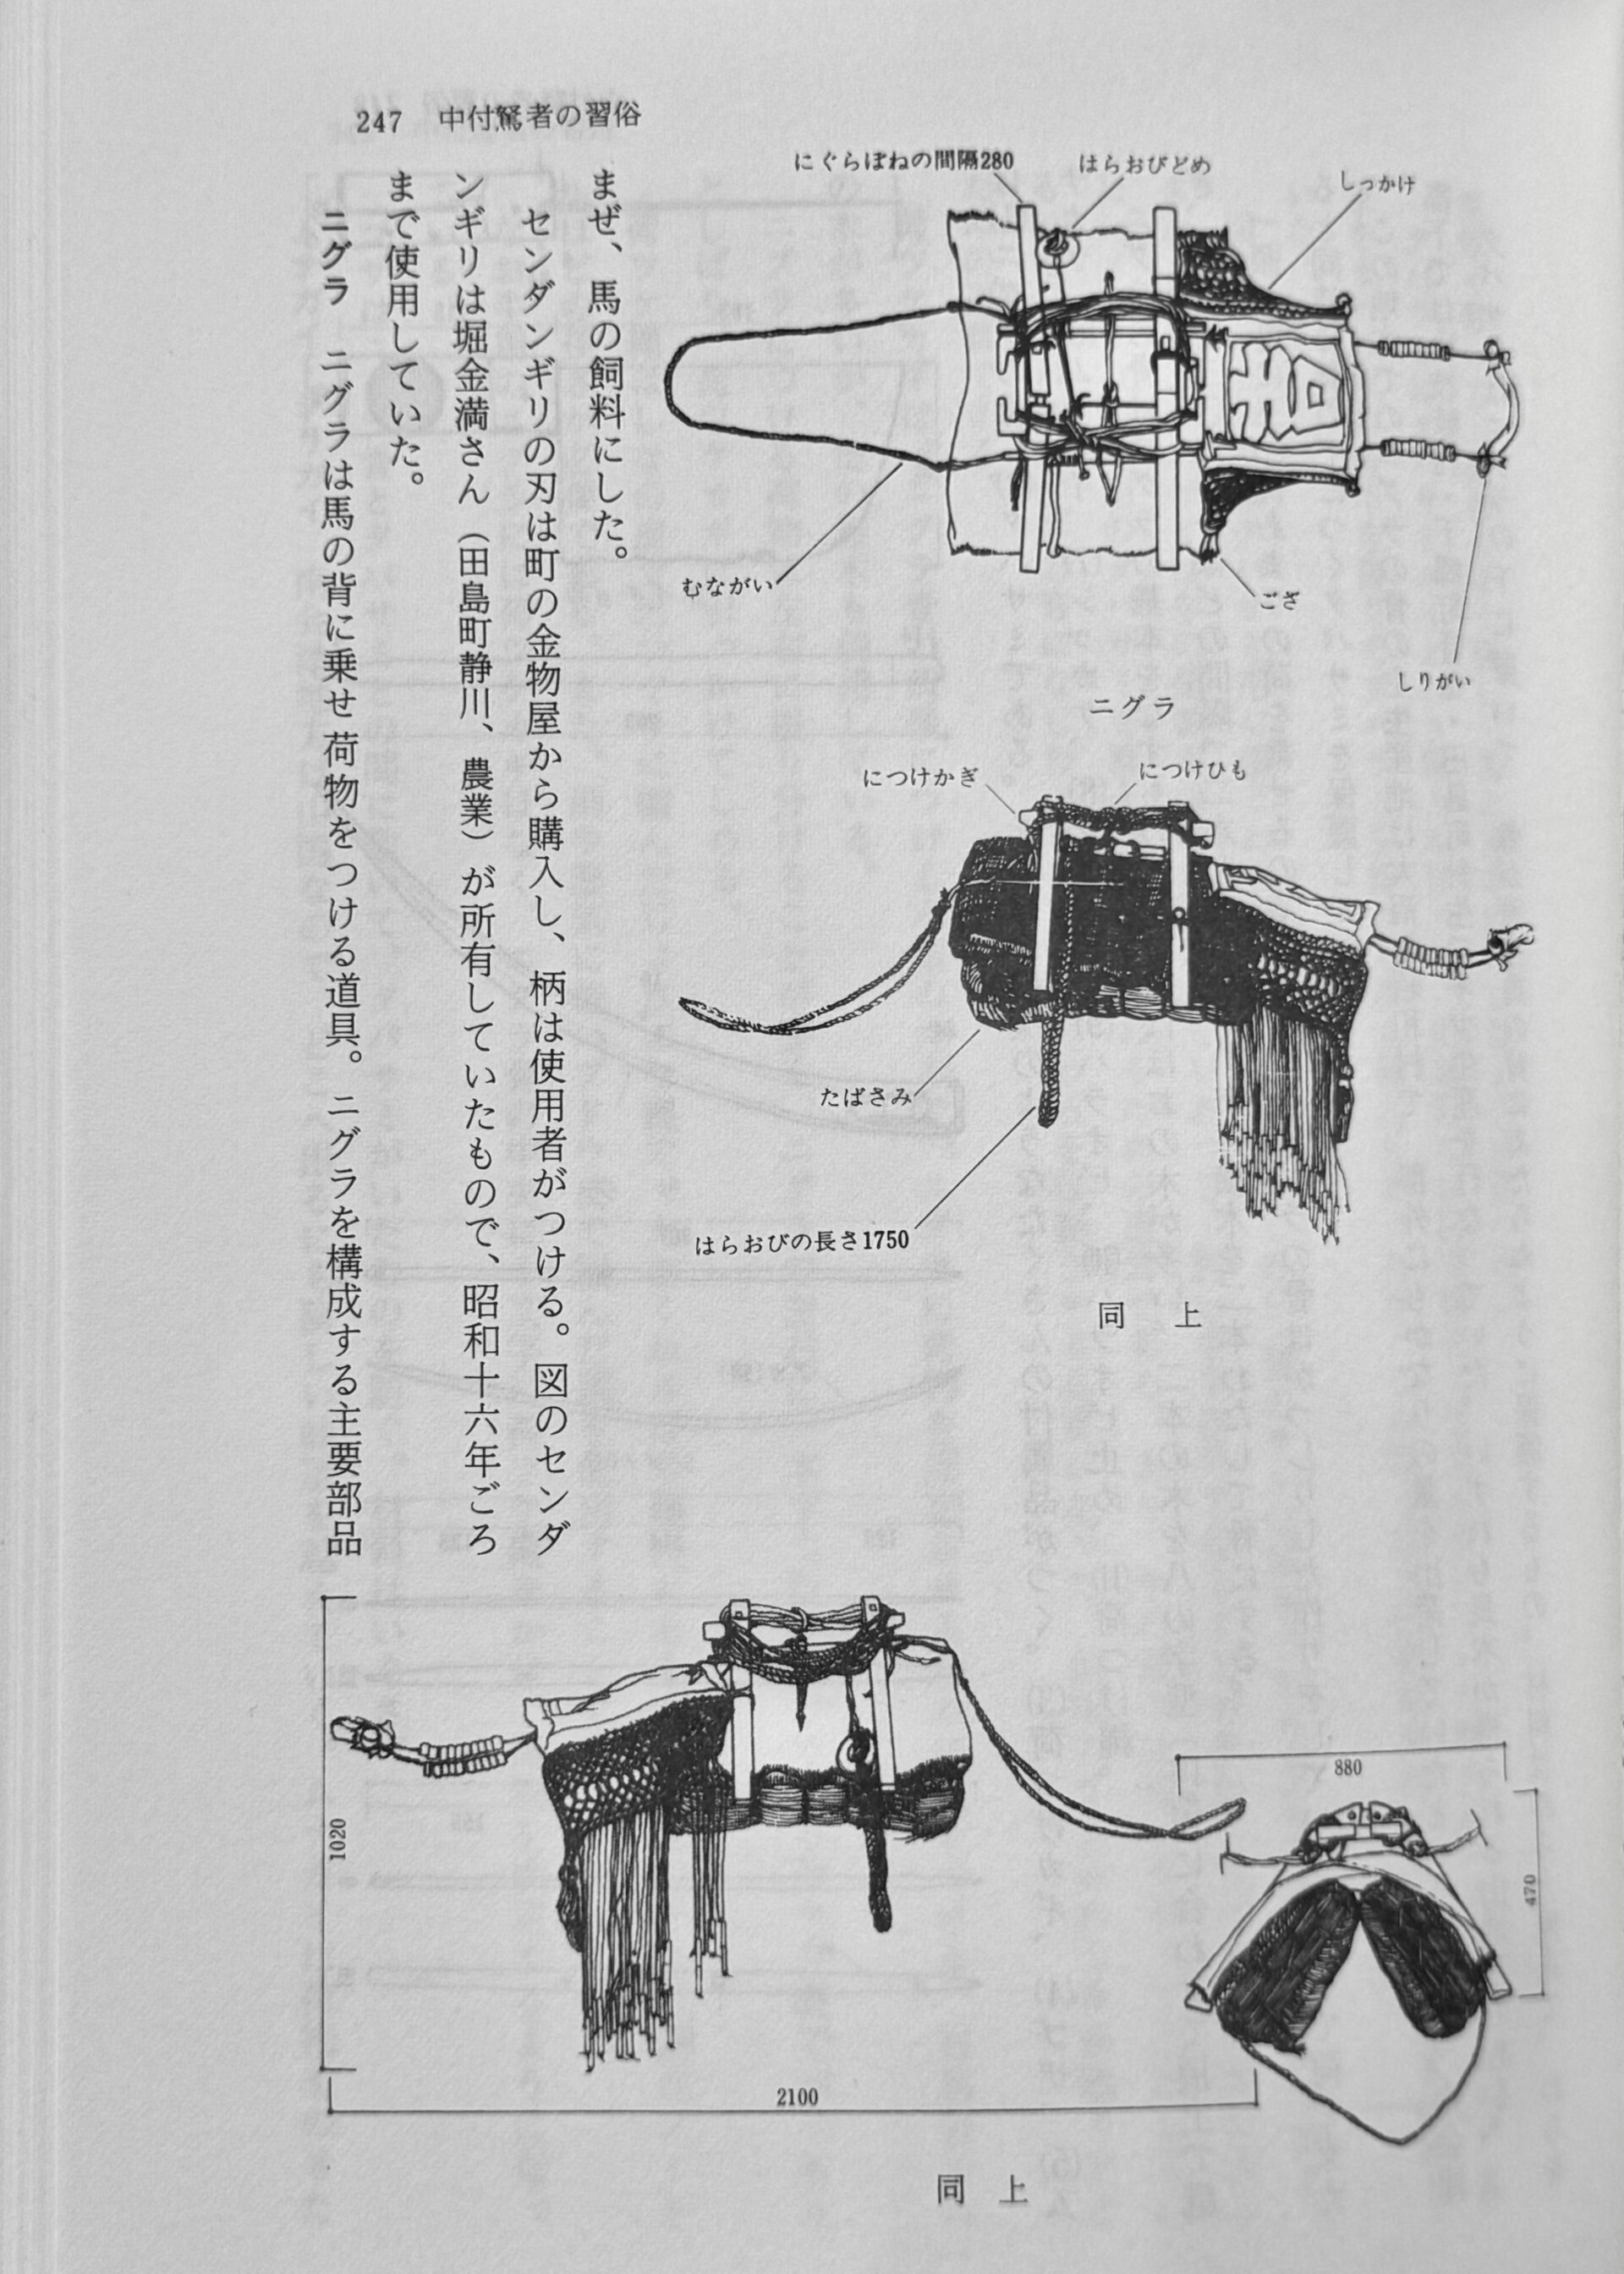 247 中付駑者の習俗
にぐらぼねの間隔280
はらおびどめ
しっかけ
むながい
ござ
しりがい
ニグラ
につけかぎ
につけひも
たばさみ
はらおびの長さ1750
同上
まぜ、馬の飼料にした。
センダンギリの刃は町の金物屋から購入し、柄は使用者がつける。図のセンダ
ンギリは堀金満さん（田島町静川、農業）が所有していたもので、昭和十六年ごろ
まで使用していた。
ニグラ ニグラは馬の背に乗せ荷物をつける道具。ニグラを構成する主要部品
1020
2100
880
470
同上